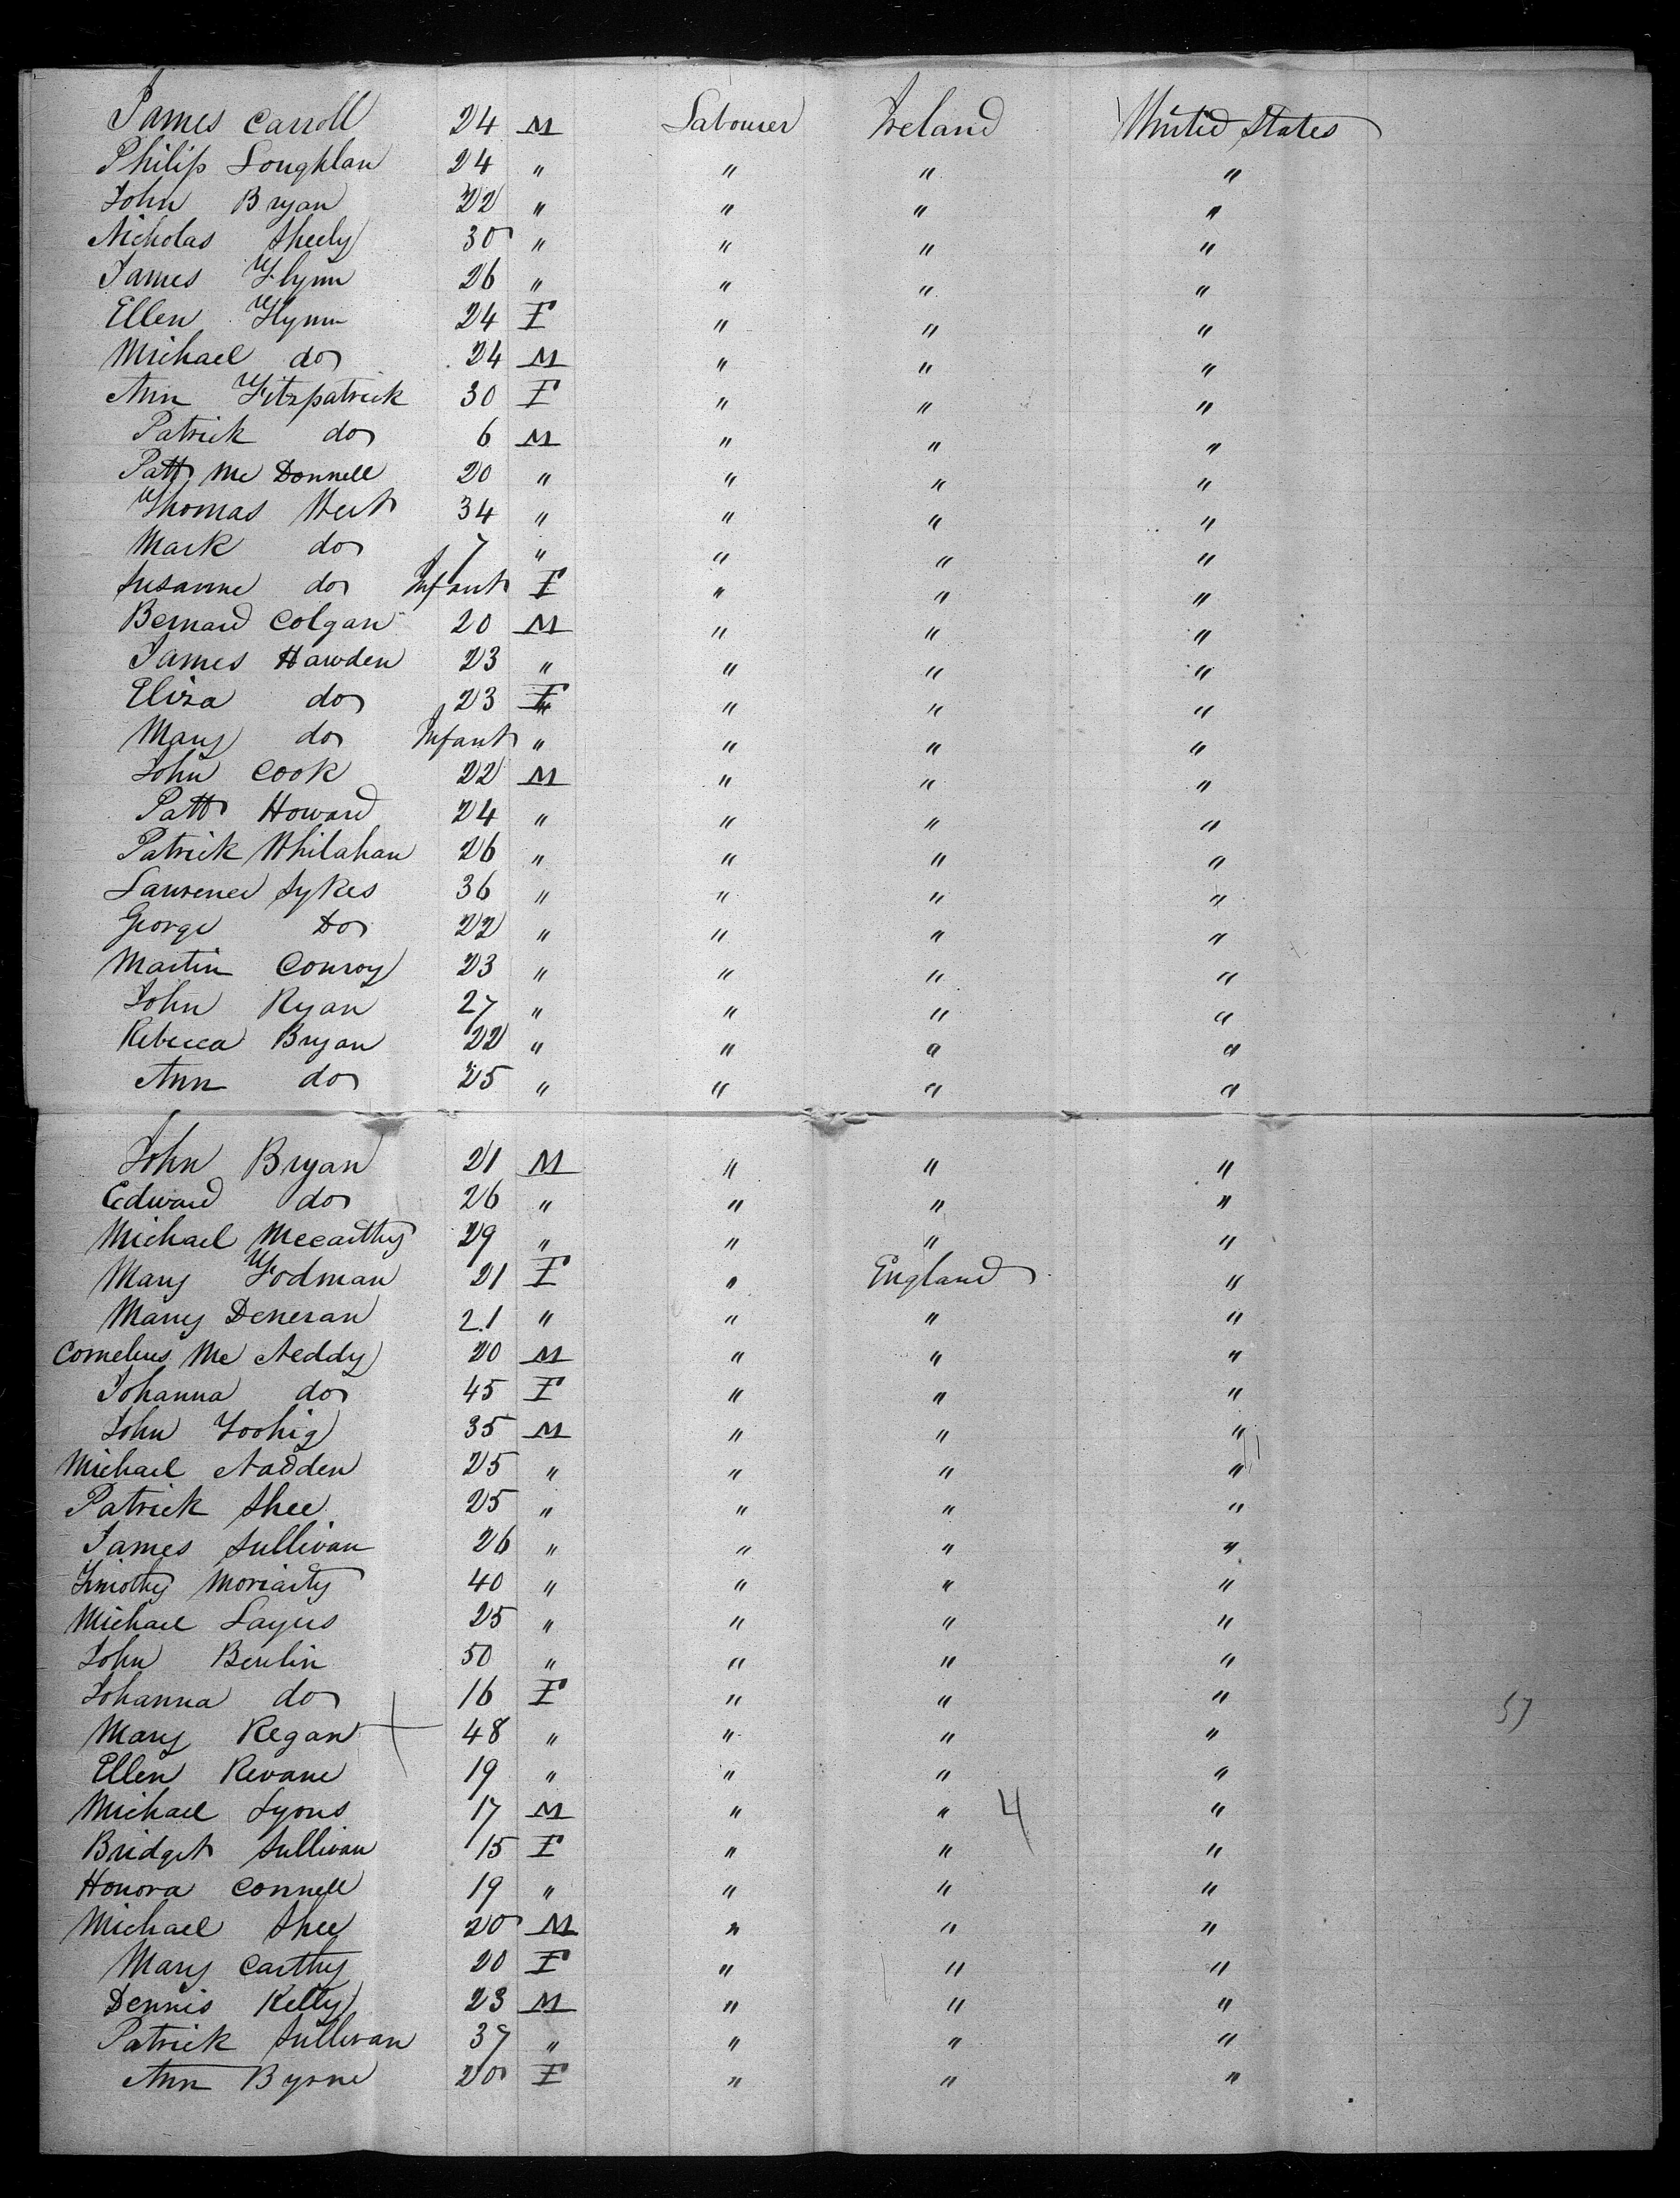 James Carroll 24 M Labourer Ireland United States
Philip Loughlan 24 " " " "
John Bryan 22 " " " "
Nicholas Sheely 30 " " " "
James Flynn 26 " " " "
Ellen Flynn 24 F " " "
Michael do 24 M " " "
Ann Fitzpatrick 30 F " " "
Patrick do 6 M " " "
Patt Mc Donnell 20 " " " "
Thomas West 34 " " " "
Mark do 7 " " " "
Susanne do Infant F " " "
Bernard Colgan 20 M " " "
James Hawden 23 " " " "
Eliza do 23 F " " "
Mary do Infant " " " "
John Cook 22 M " " "
Patt Howard 24 " " " "
Patrick Whilahan 26 " " " "
Laurence Sykes 36 " " " "
George Do 22 " " " "
Martin Conroy 23 " " " "
John Ryan 27 " " " "
Rebecca Bryan 22 " " " "
Ann do 25 " " " "
John Bryan 21 M " " "
Edward do 26 " " " "
Michael Mccarthy 29 " " " "
Mary Fodman 21 F " England "
Mary Deneran 21 " " " "
Cornelius Mc Neddy 20 M " " "
Johanna do 45 F " " "
John Foohig 35 M " " "
Michael Nadden 25 " " " "
Patrick Shee 25 " " " "
James Sullivan 26 " " " "
Timothy Moriarty 40 " " " "
Michael Layus 25 " " " "
John Benlin 50 " " " "
Johanna do 16 F " " "
Mary Regan 48 " " " " 57
Ellen Revane 19 " " " "
Michael Lyons 17 M " " 4 "
Bridget Sullivan 15 F " " "
Honora Connell 19 " " " "
Michael Shee 20 M " " "
Mary Carthy 20 F " " "
Dennis Kelly 23 M " " "
Patrick Sullivan 37 " " " "
Ann Byrne 20 F " " "